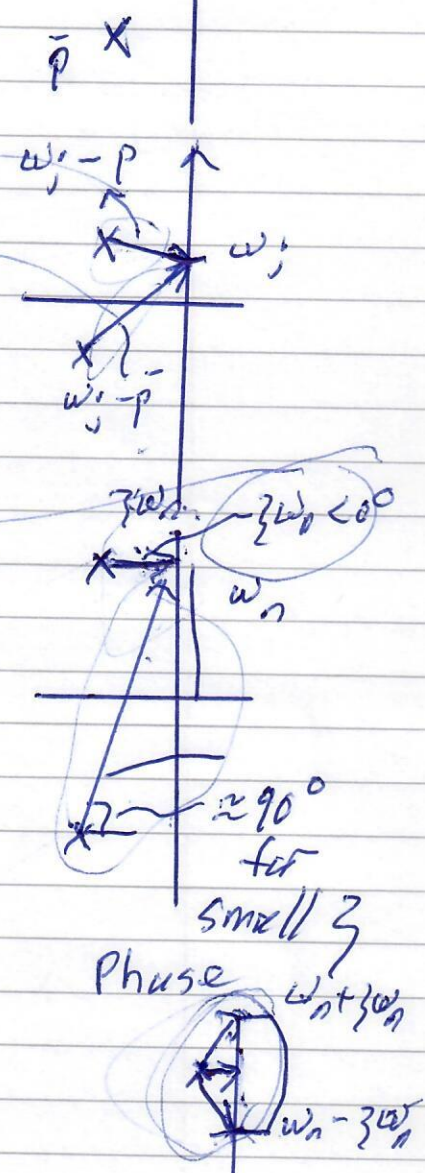 p̄
ωj - p
ωj
ωj - p̄
ζωn
ζωn < 0°
ωn
≈ 90°
for
small ζ
Phase
ωn + ζωn
ωn - ζωn